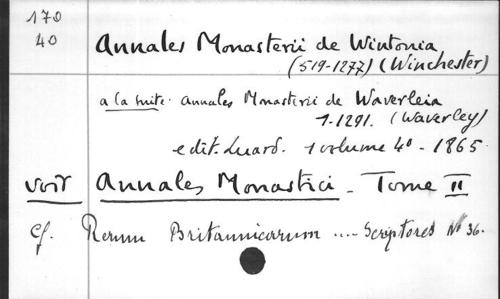 170
40
Annales Monasterii de Wintonia
(519-1277) (Winchester)
a la suite. Annales Monasterii de Waverleia
1-1291. (Waverley)
edit. Luard. 1 volume 4° - 1865
voir Annales Monastici - Tome II
Cf. Rerum Britannicarum .... Scriptores N° 36.